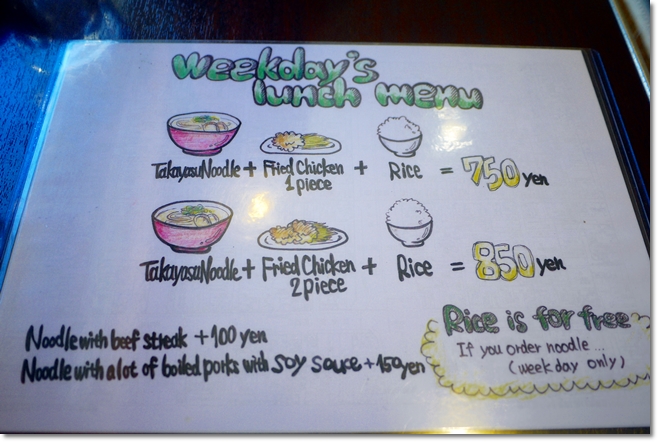 weekday's
lunch menu
Takayasu Noodle + Fried Chicken 1 piece + Rice = 750 yen
Takayasu Noodle + Fried Chicken 2 piece + Rice = 850 yen
Noodle with beef streak +100 yen
Noodle with a lot of boiled porks with soy sauce +150 yen
Rice is for free
If you order noodle...
(weekday only)